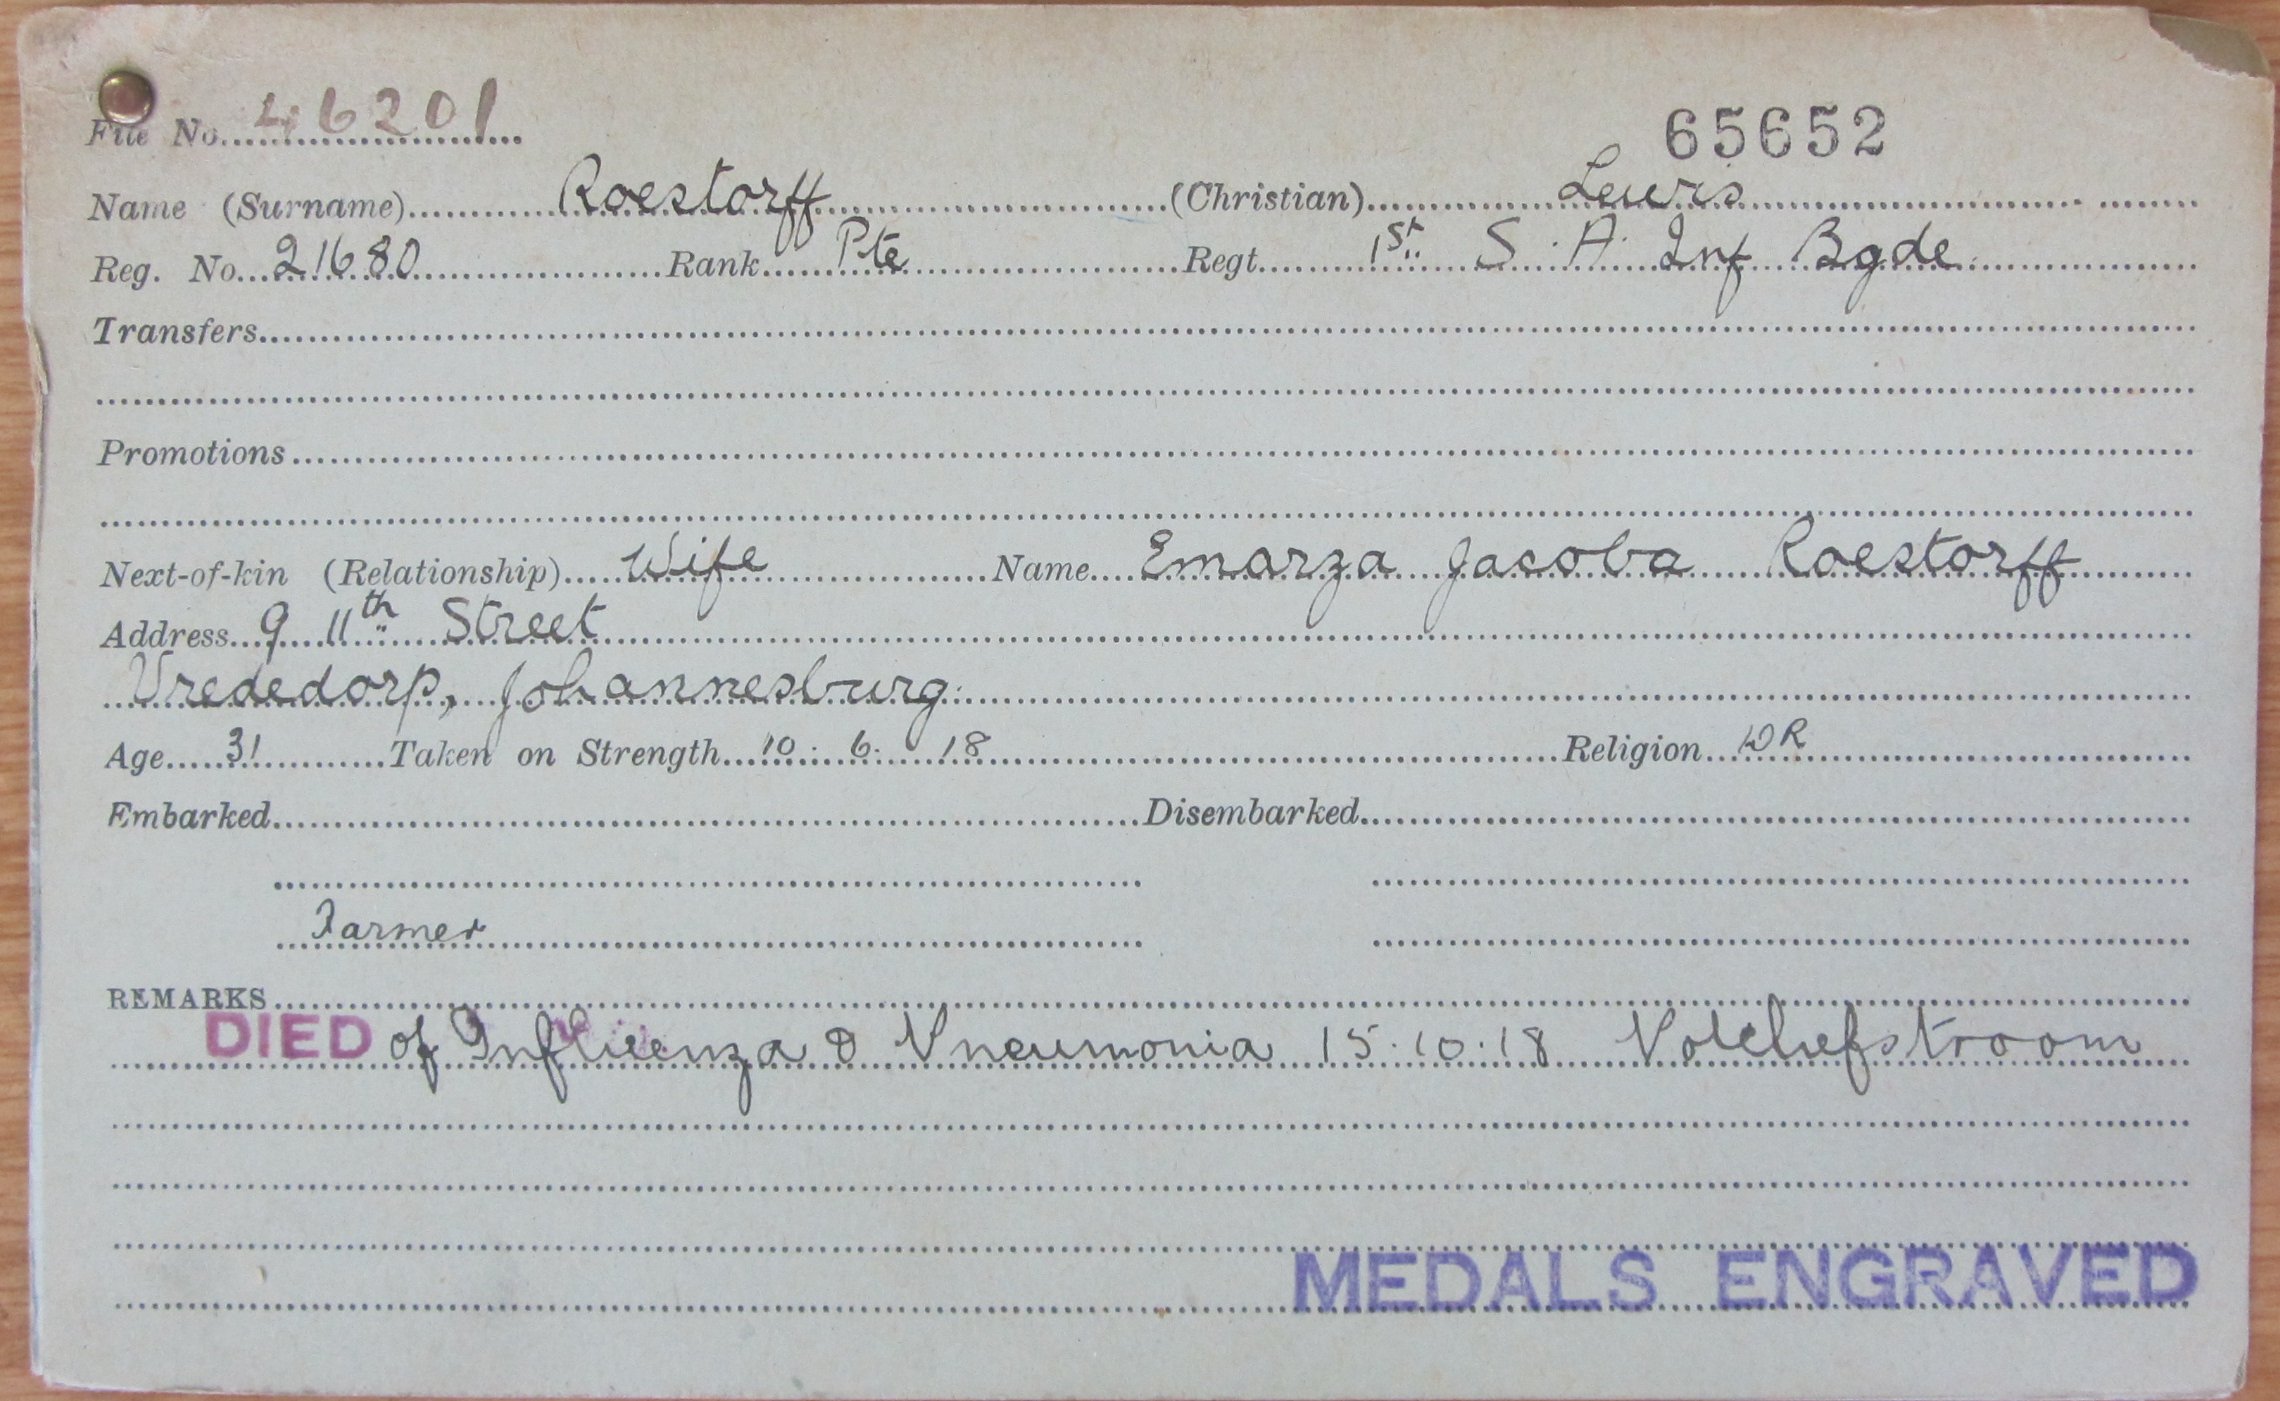 File No. 46201
65652
Name (Surname) Roestorff (Christian) Lewis
Reg. No. 21680 Rank Pte Regt. 1st S. A. Inf Bgde.
Transfers
Promotions
Next-of-kin (Relationship) Wife Name Emarza Jacoba Roestorff
Address 9 11th Street
Vrededorp, Johannesburg.
Age 31 Taken on Strength 10. 6. 18 Religion DR
Embarked Disembarked
Farmer
REMARKS
DIED of Influenza & Pneumonia 15.10.18 Potchefstroom
MEDALS ENGRAVED